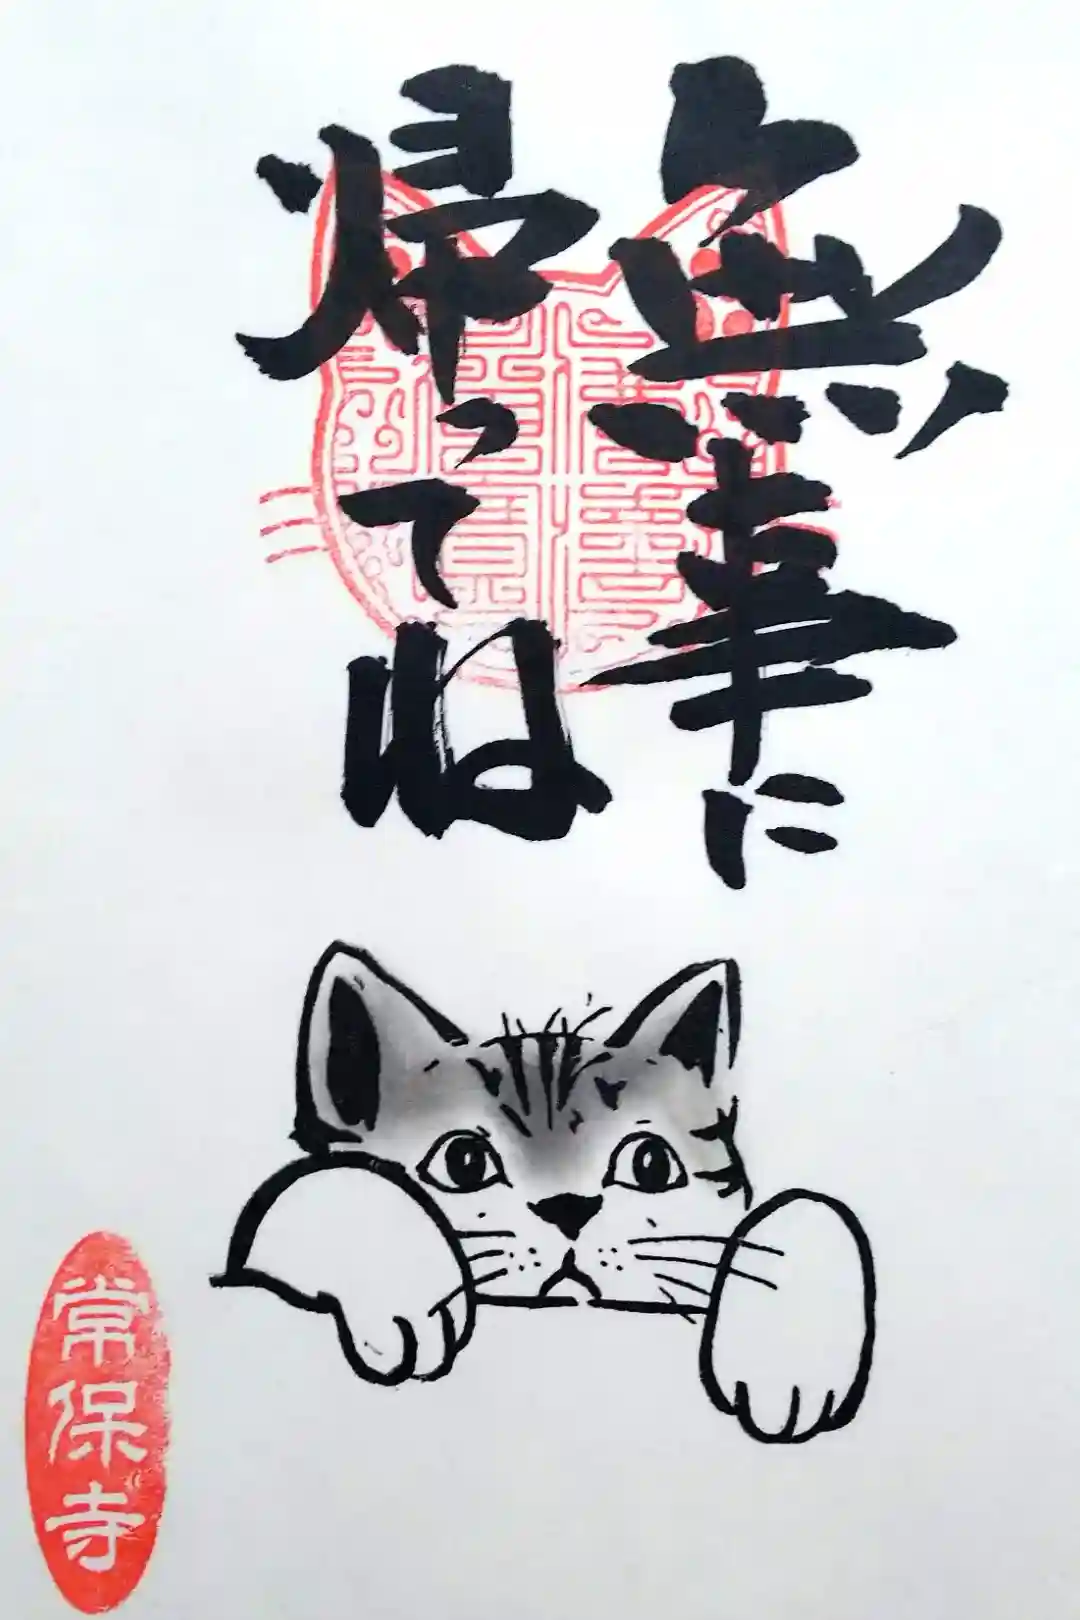 無事に
帰ってね
常保寺